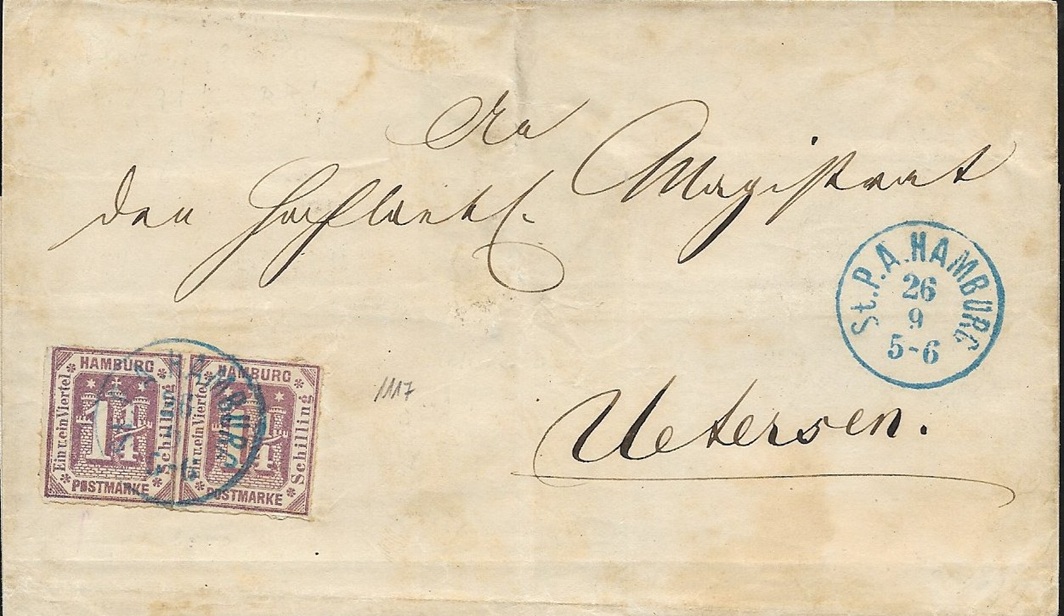 An
den Hochlöobl. Magistrat
Uetersen.
1117
St.P.A. HAMBURG
26
9
5-6
HAMBURG
Ein u. ein Viertel
1¼
Schilling
POSTMARKE
HAMBURG
Ein u. ein Viertel
1¼
Schilling
POSTMARKE
HAMBURG